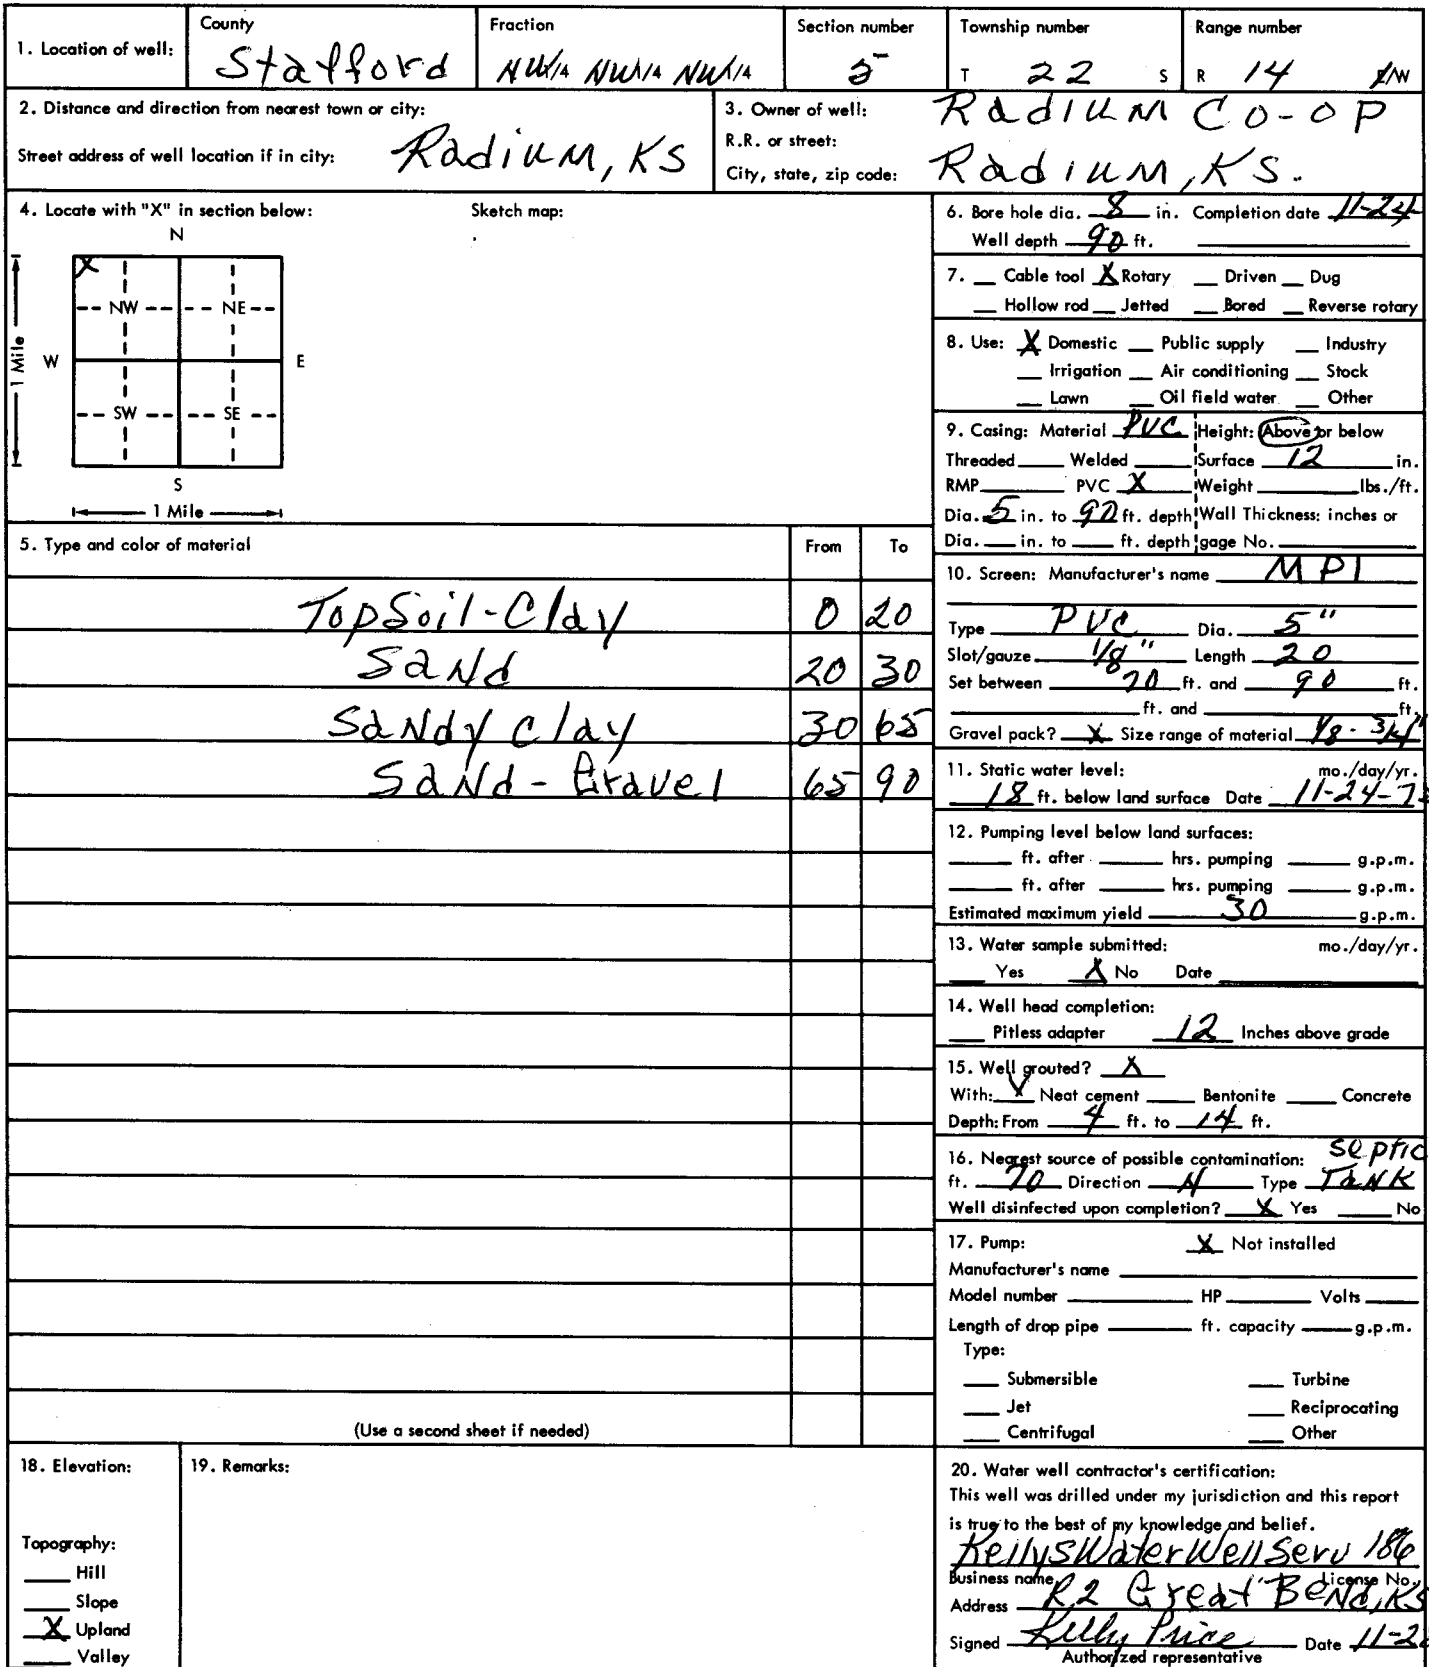 1. Location of well: County Stafford Fraction NW1/4 NW1/4 NW1/4 Section number 5 Township number T 22 S Range number R 14 E/W
2. Distance and direction from nearest town or city:
Street address of well location if in city: Radium, KS
3. Owner of well: Radium CO-OP
R.R. or street:
City, state, zip code: Radium, KS.
4. Locate with "X" in section below: Sketch map:
N
X
NW NE
W E
1 Mile
SW SE
S
1 Mile
5. Type and color of material From To
TopSoil-Clay 0 20
Sand 20 30
Sandy Clay 30 65
Sand-Gravel 65 90
(Use a second sheet if needed)
6. Bore hole dia. 8 in. Completion date 11-24
Well depth 90 ft.
7. __ Cable tool X Rotary __ Driven __ Dug
__ Hollow rod __ Jetted __ Bored __ Reverse rotary
8. Use: X Domestic __ Public supply __ Industry
__ Irrigation __ Air conditioning __ Stock
__ Lawn __ Oil field water __ Other
9. Casing: Material PVC Height: Above or below
Threaded ____ Welded ____ Surface 12 in.
RMP ____ PVC X Weight ____ lbs./ft.
Dia. 5 in. to 90 ft. depth Wall Thickness: inches or
Dia. __ in. to __ ft. depth gage No. ____
10. Screen: Manufacturer's name MPI
Type PVC Dia. 5"
Slot/gauze 1/8" Length 20
Set between 70 ft. and 90 ft.
____ ft. and ____ ft.
Gravel pack? X Size range of material 1/8 - 3/4"
11. Static water level: mo./day/yr.
18 ft. below land surface Date 11-24-7
12. Pumping level below land surfaces:
____ ft. after ____ hrs. pumping ____ g.p.m.
____ ft. after ____ hrs. pumping ____ g.p.m.
Estimated maximum yield 30 g.p.m.
13. Water sample submitted: mo./day/yr.
__ Yes X No Date ____
14. Well head completion:
__ Pitless adapter 12 Inches above grade
15. Well grouted? X
With: X Neat cement ____ Bentonite ____ Concrete
Depth: From 4 ft. to 14 ft.
16. Nearest source of possible contamination: Septic
ft. 70 Direction N Type Tank
Well disinfected upon completion? X Yes ____ No
17. Pump: X Not installed
Manufacturer's name ____
Model number ____ HP ____ Volts ____
Length of drop pipe ____ ft. capacity ____ g.p.m.
Type:
__ Submersible __ Turbine
__ Jet __ Reciprocating
__ Centrifugal __ Other
18. Elevation:
Topography:
__ Hill
__ Slope
X Upland
__ Valley
19. Remarks:
20. Water well contractor's certification:
This well was drilled under my jurisdiction and this report
is true to the best of my knowledge and belief.
KellysWaterWellServ 186
Business name License No.
Address R2 Great Bend, KS
Signed Kelly Price Date 11-2
Authorized representative